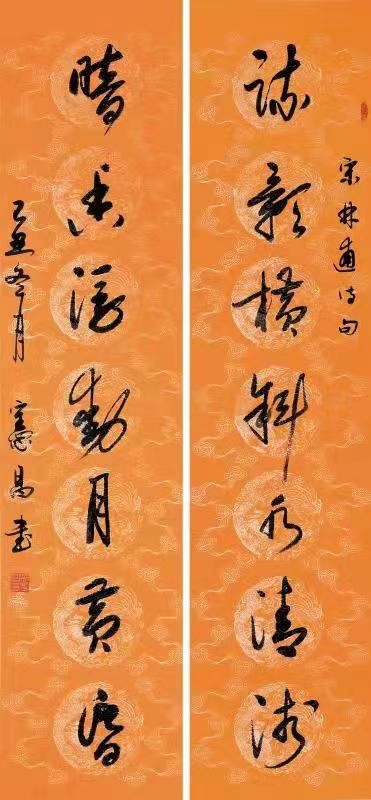 宋林逋诗句
疏影横斜水清浅
暗香浮動月黄昏
己丑冬月 憲昌书